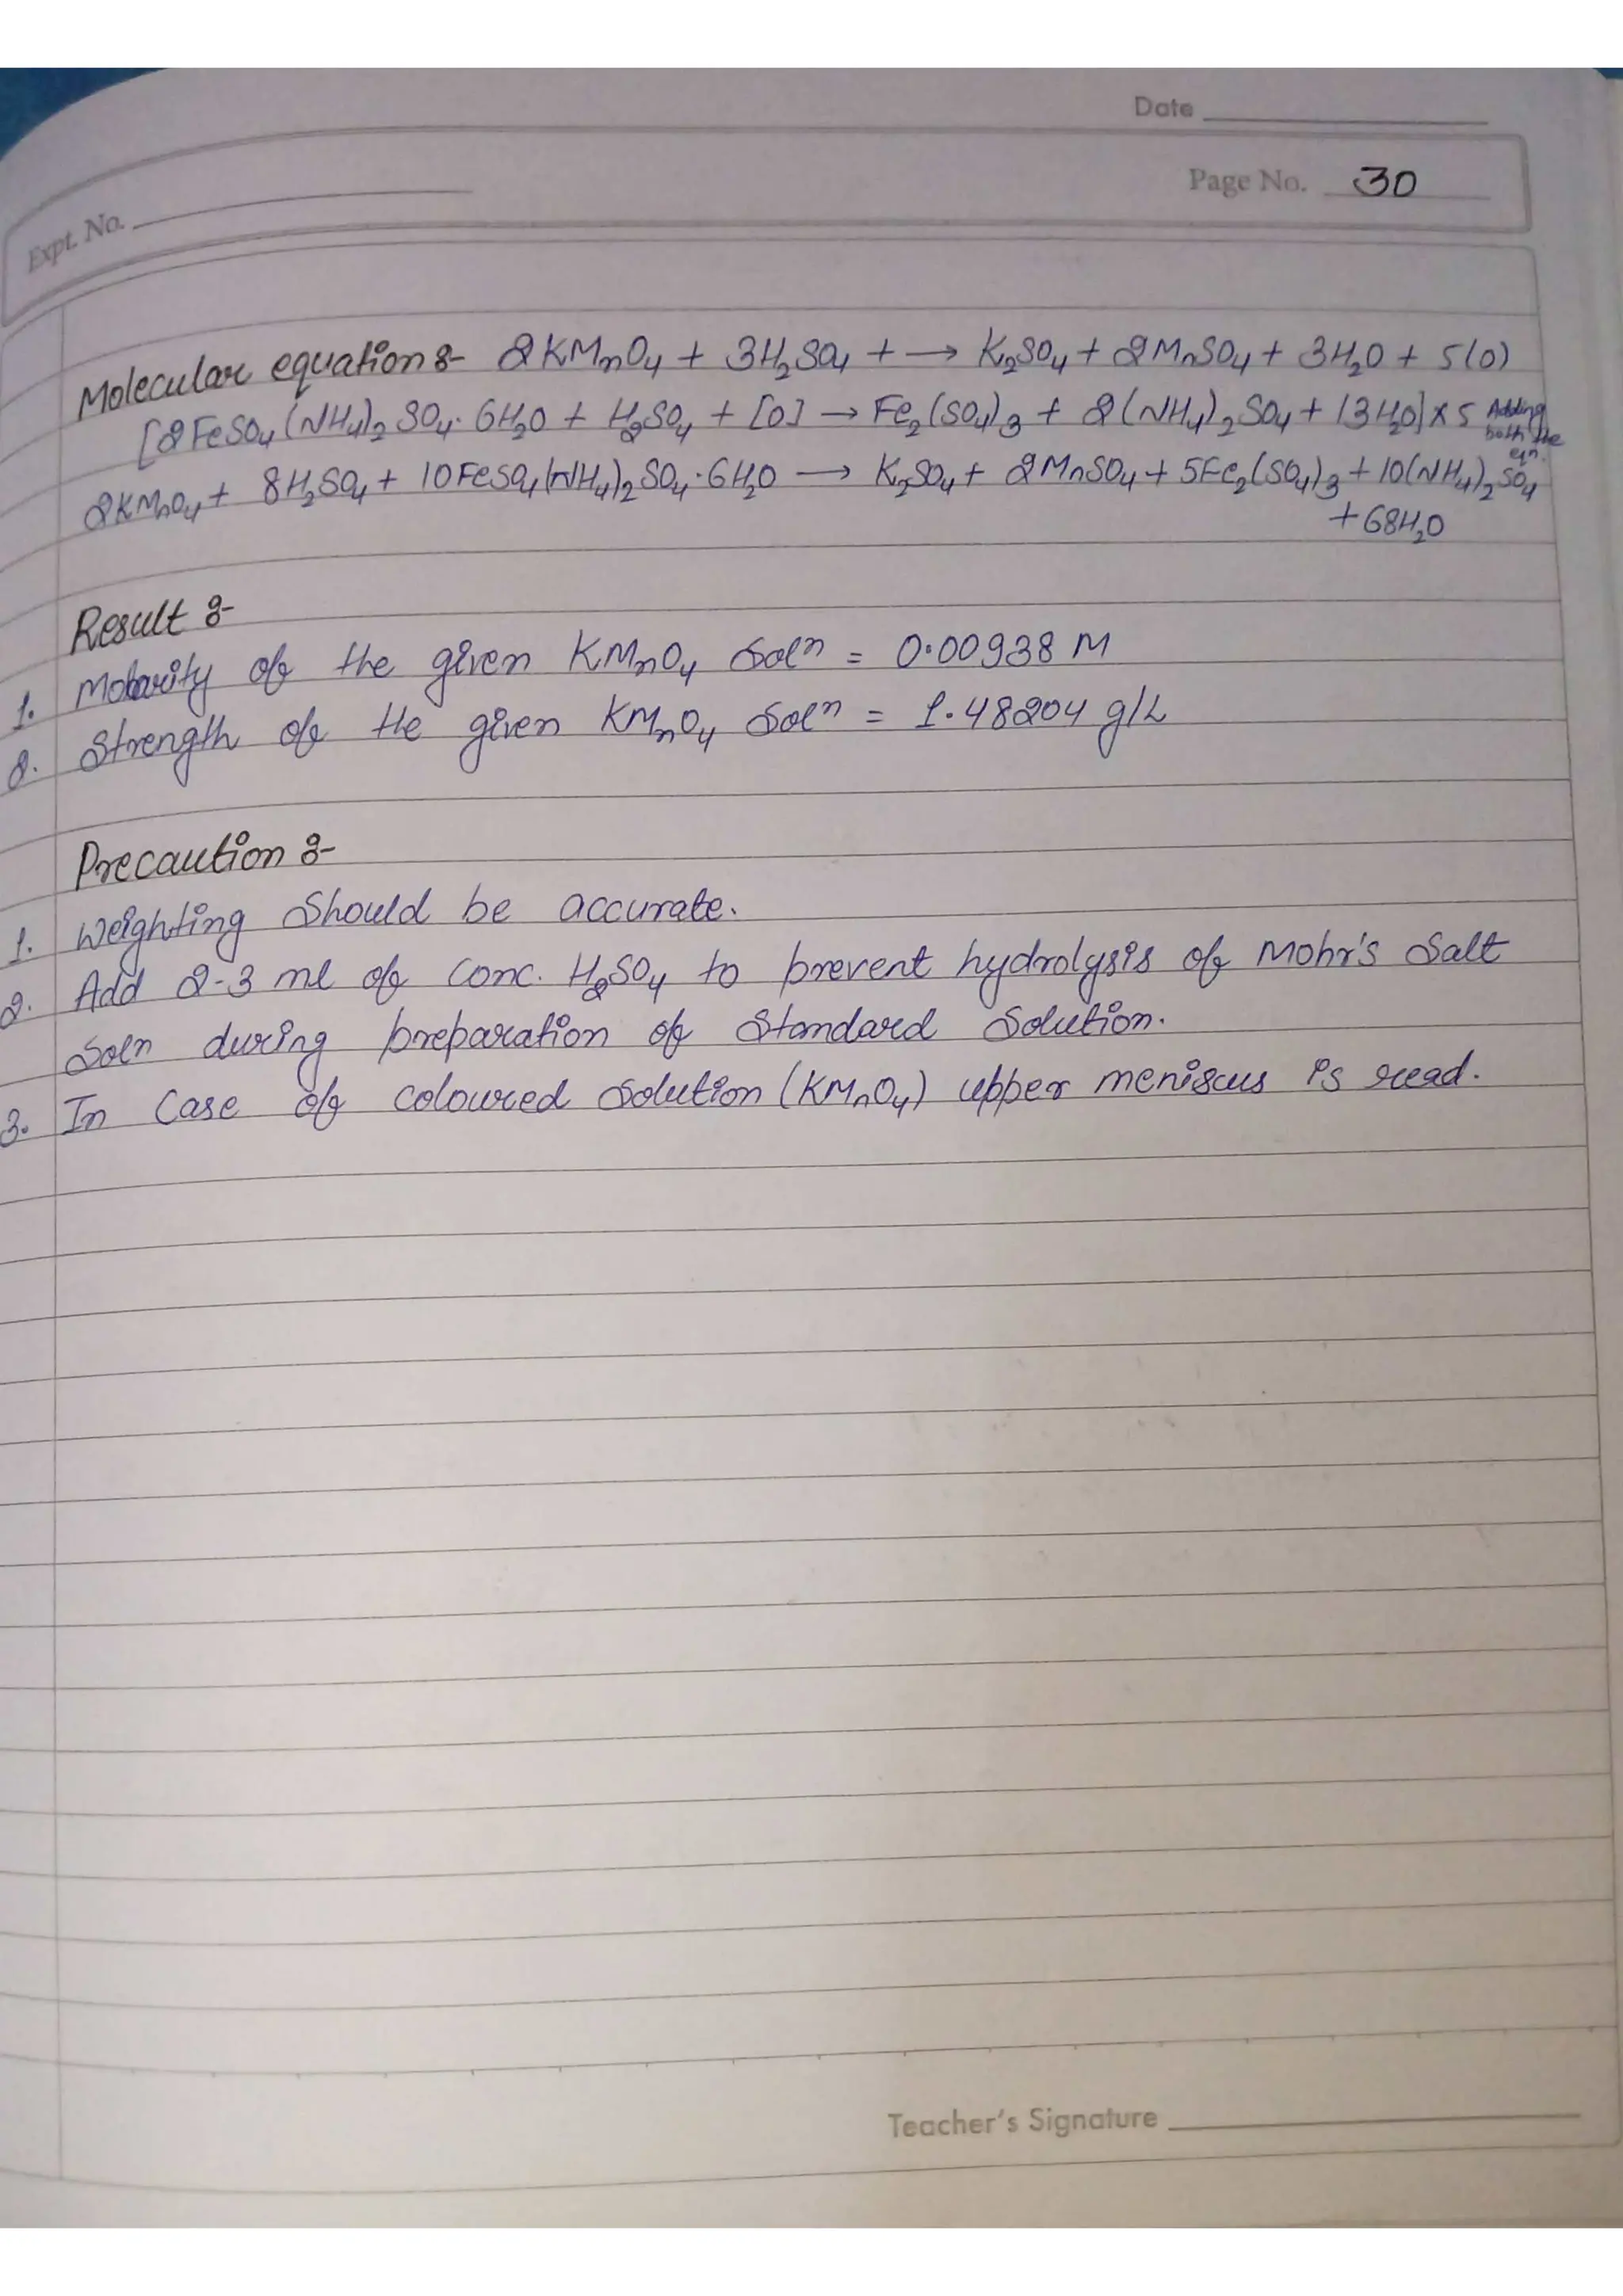 Date
Page No. 30
Expt. No.
Molecular equation :- 2KMnO₄ + 3H₂SO₄ + → K₂SO₄ + 2MnSO₄ + 3H₂O + 5(O)
[2FeSO₄(NH₄)₂SO₄·6H₂O + H₂SO₄ + [O] → Fe₂(SO₄)₃ + 2(NH₄)₂SO₄ + 13H₂O] × 5 Adding both the eqn.
2KMnO₄ + 8H₂SO₄ + 10FeSO₄(NH₄)₂SO₄·6H₂O → K₂SO₄ + 2MnSO₄ + 5Fe₂(SO₄)₃ + 10(NH₄)₂SO₄
+68H₂O
Result :-
1. Molarity of the given KMnO₄ Solⁿ = 0.00938 M
2. Strength of the given KMnO₄ Solⁿ = 1.48204 g/L
Precaution :-
1. Weighting Should be accurate.
2. Add 2-3 ml of conc. H₂SO₄ to prevent hydrolysis of Mohr's Salt
Soln during preparation of Standard Solution.
3. In Case of coloured Solution (KMnO₄) upper meniscus is read.
Teacher's Signature